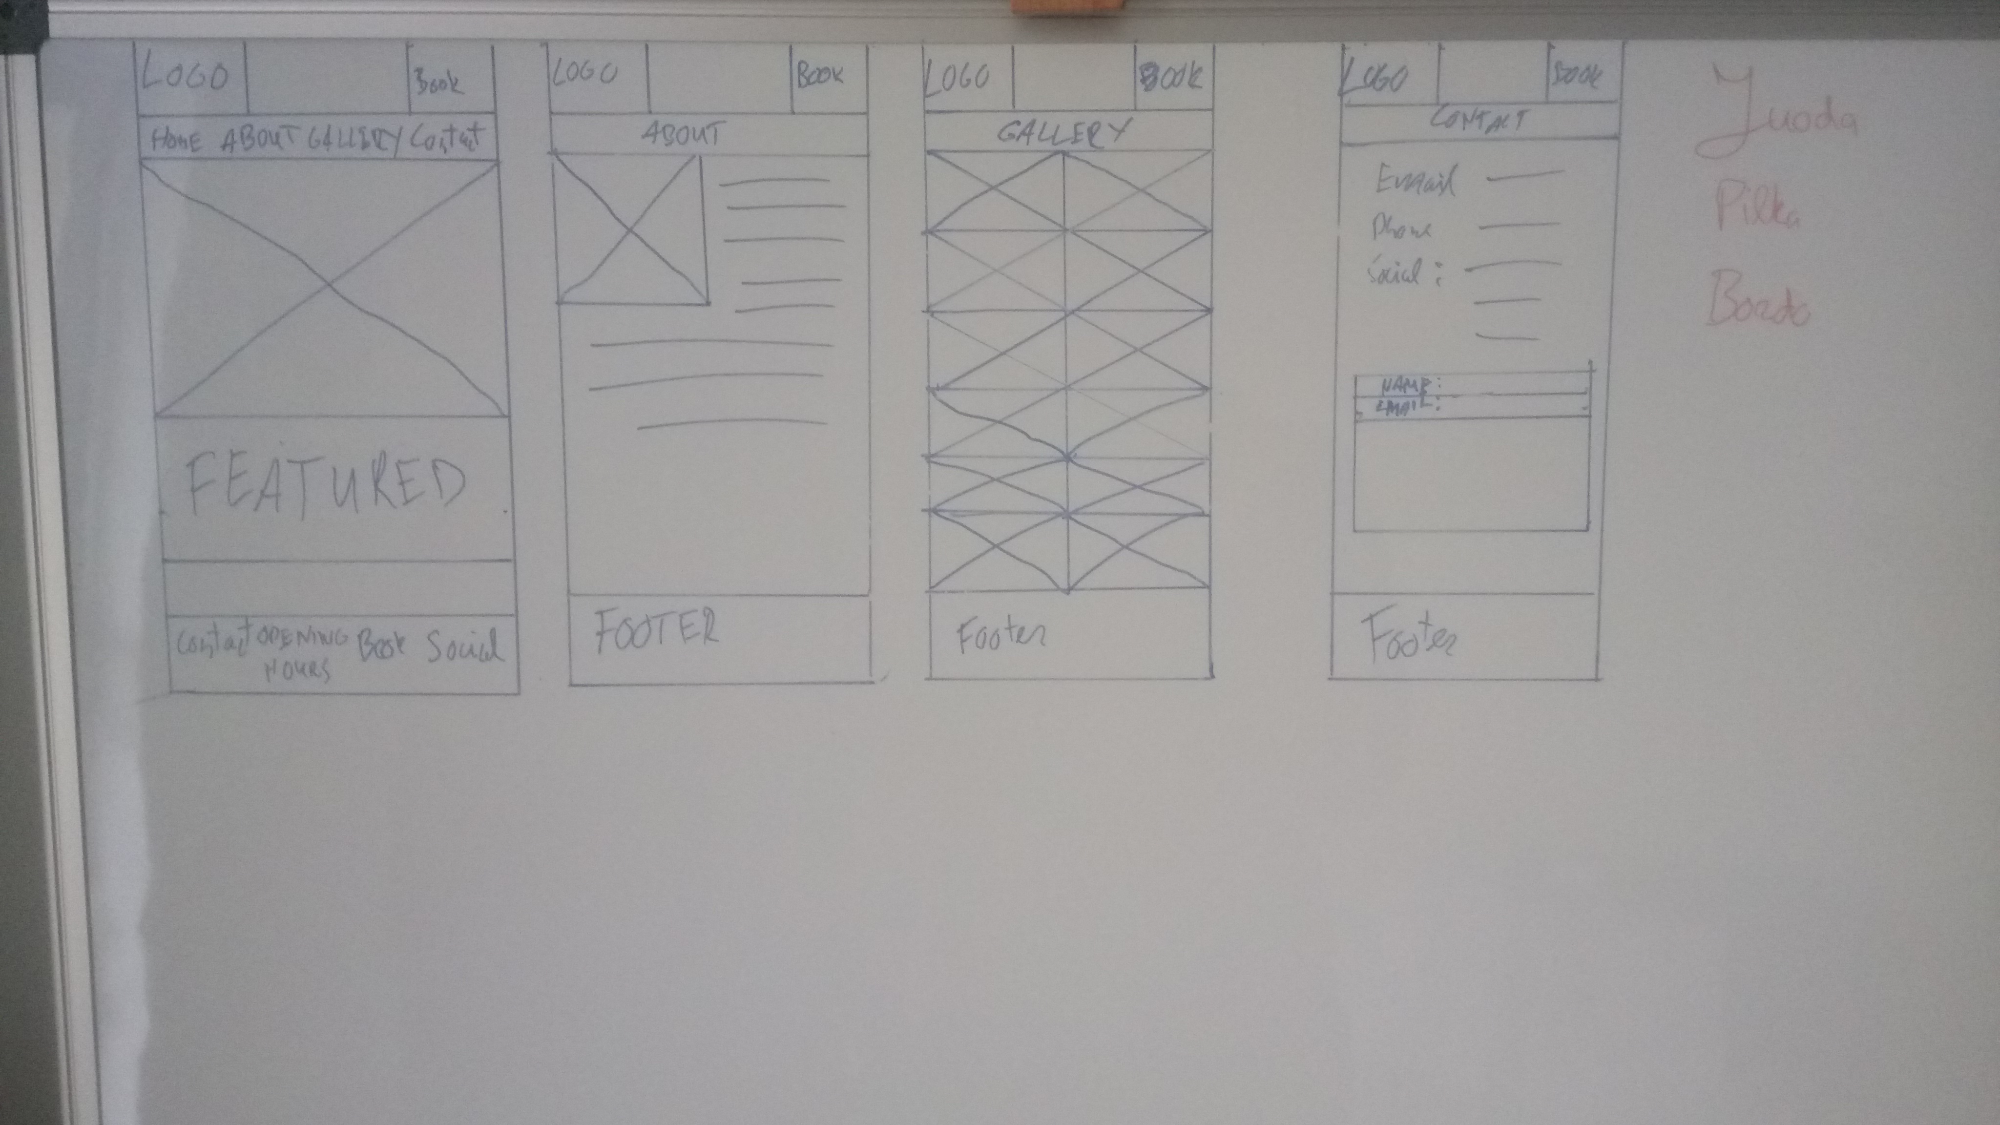 LOGO Book
Home ABOUT GALLERY Contact
FEATURED
Contact OPENING HOURS Book Social
LOGO Book
ABOUT
FOOTER
LOGO Book
GALLERY
Footer
LOGO Book
CONTACT
Email
Phone
Social :
NAME:
EMAIL:
Footer
Juoda
Pilka
Bordo